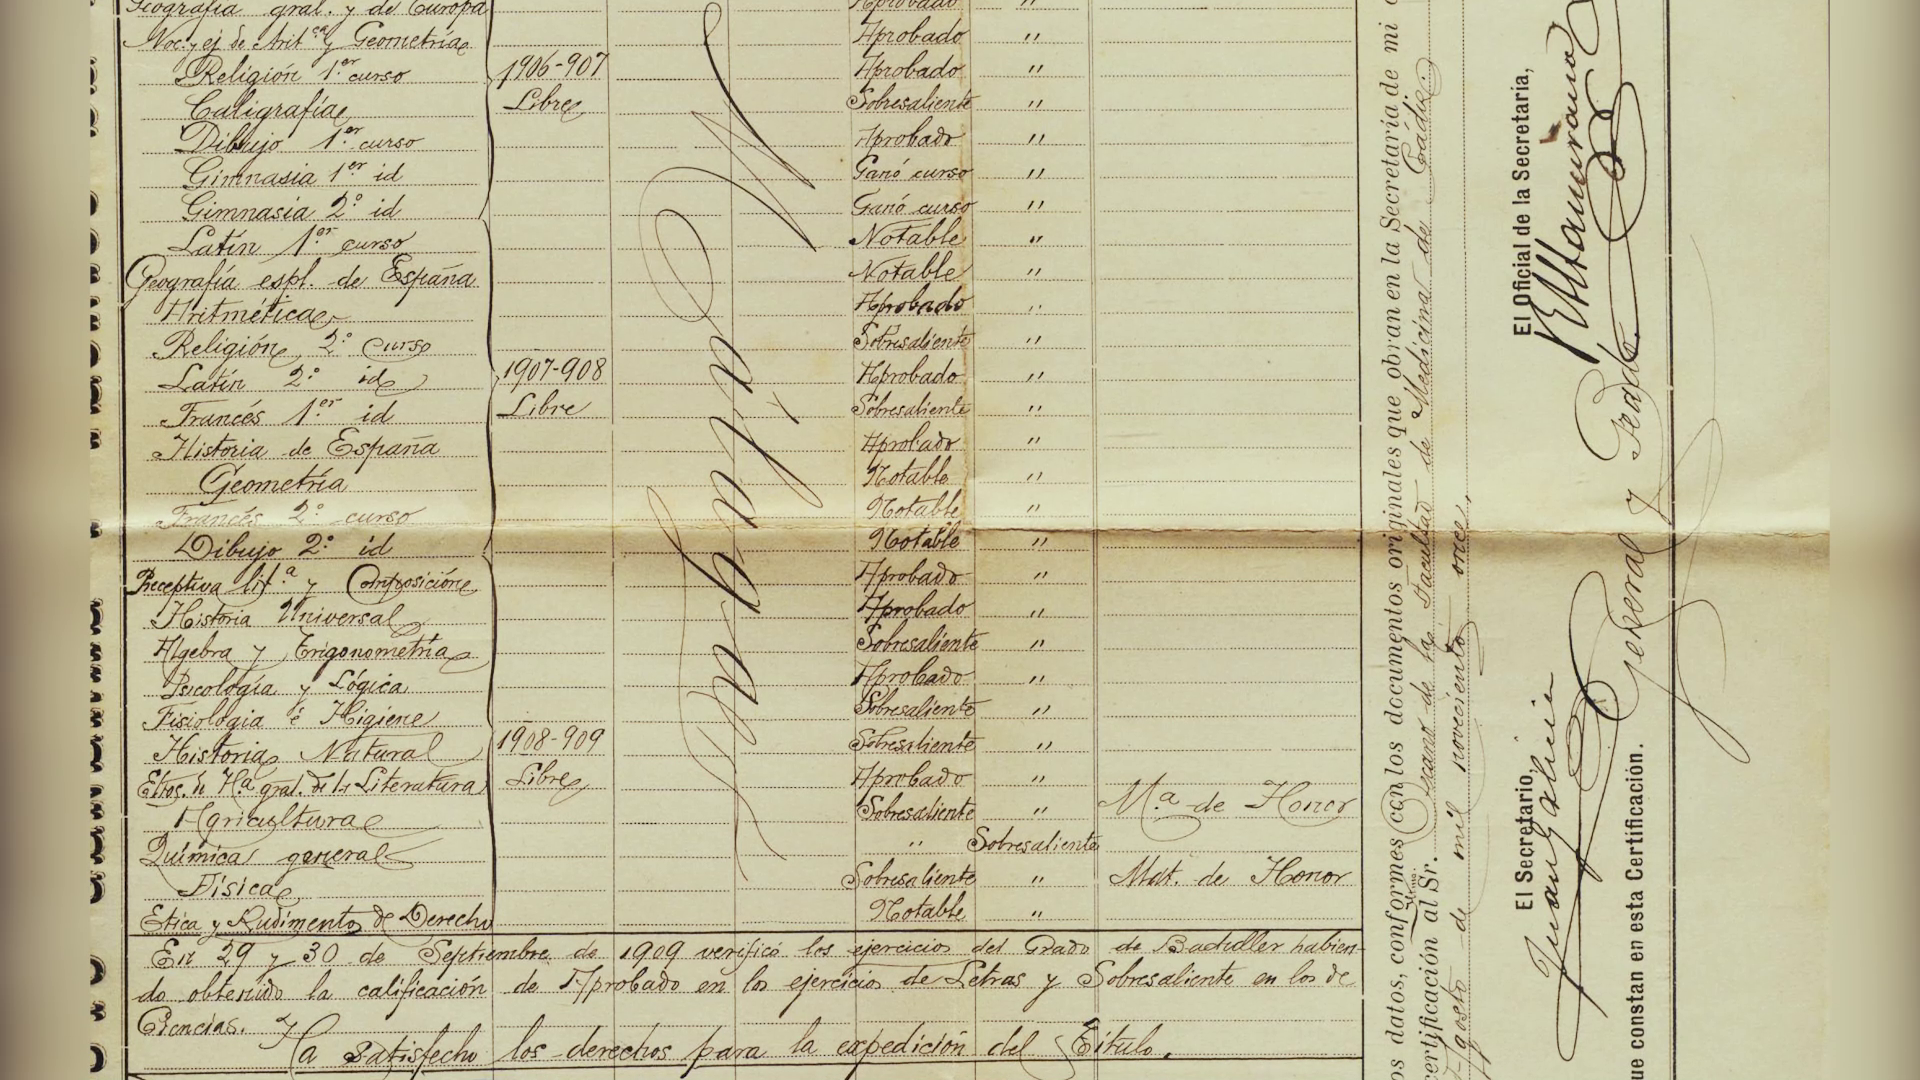 Geografía gral. y de Europa Aprobado "
Noc. y ej. de Arit.ca y Geometría Aprobado "
Religión 1.er curso 1906-907 Aprobado "
Caligrafía Libre Sobresaliente "
Dibujo 1.er curso Aprobado "
Gimnasia 1.er id Ganó curso "
Gimnasia 2.º id Ganó curso "
Latín 1.er curso Notable "
Geografía espl. de España Notable "
Aritmética Aprobado "
Religión 2.º Curso Sobresaliente "
Latín 2.º id 1907-908 Aprobado "
Francés 1.er id Libre Sobresaliente "
Historia de España Aprobado "
Geometría Notable "
Francés 2.º curso Notable "
Dibujo 2.º id Notable "
Preceptiva lit.ª y Composición Aprobado "
Historia Universal Aprobado "
Algebra y Trigonometría Sobresaliente "
Psicología y Lógica Aprobado "
Fisiologia é Higiene Sobresaliente "
Historia Natural 1908-909 Sobresaliente "
Etos. de H.ª gral. de la Literatura Libre Aprobado "
Agricultura Sobresaliente " M.ª de Honor
Química general " Sobresaliente
Física Sobresaliente " Mat. de Honor
Etica y Rudimentos de Derecho Notable "
En 29 y 30 de Septiembre de 1909 verificó los ejercicios del Grado de Bachiller habien-
do obtenido la calificación de Aprobado en los ejercicios de Letras y Sobresaliente en los de
Ciencias.
Ha satisfecho los derechos para la expedición del Título.
os datos, conformes con los documentos originales que obran en la Secretaría de mi
ertificación al Sr. Decano de la Facultad de Medicina de Cádiz
Agosto de mil novecientos once,
El Secretario,
El Oficial de la Secretaría,
General y
que constan en esta Certificación.